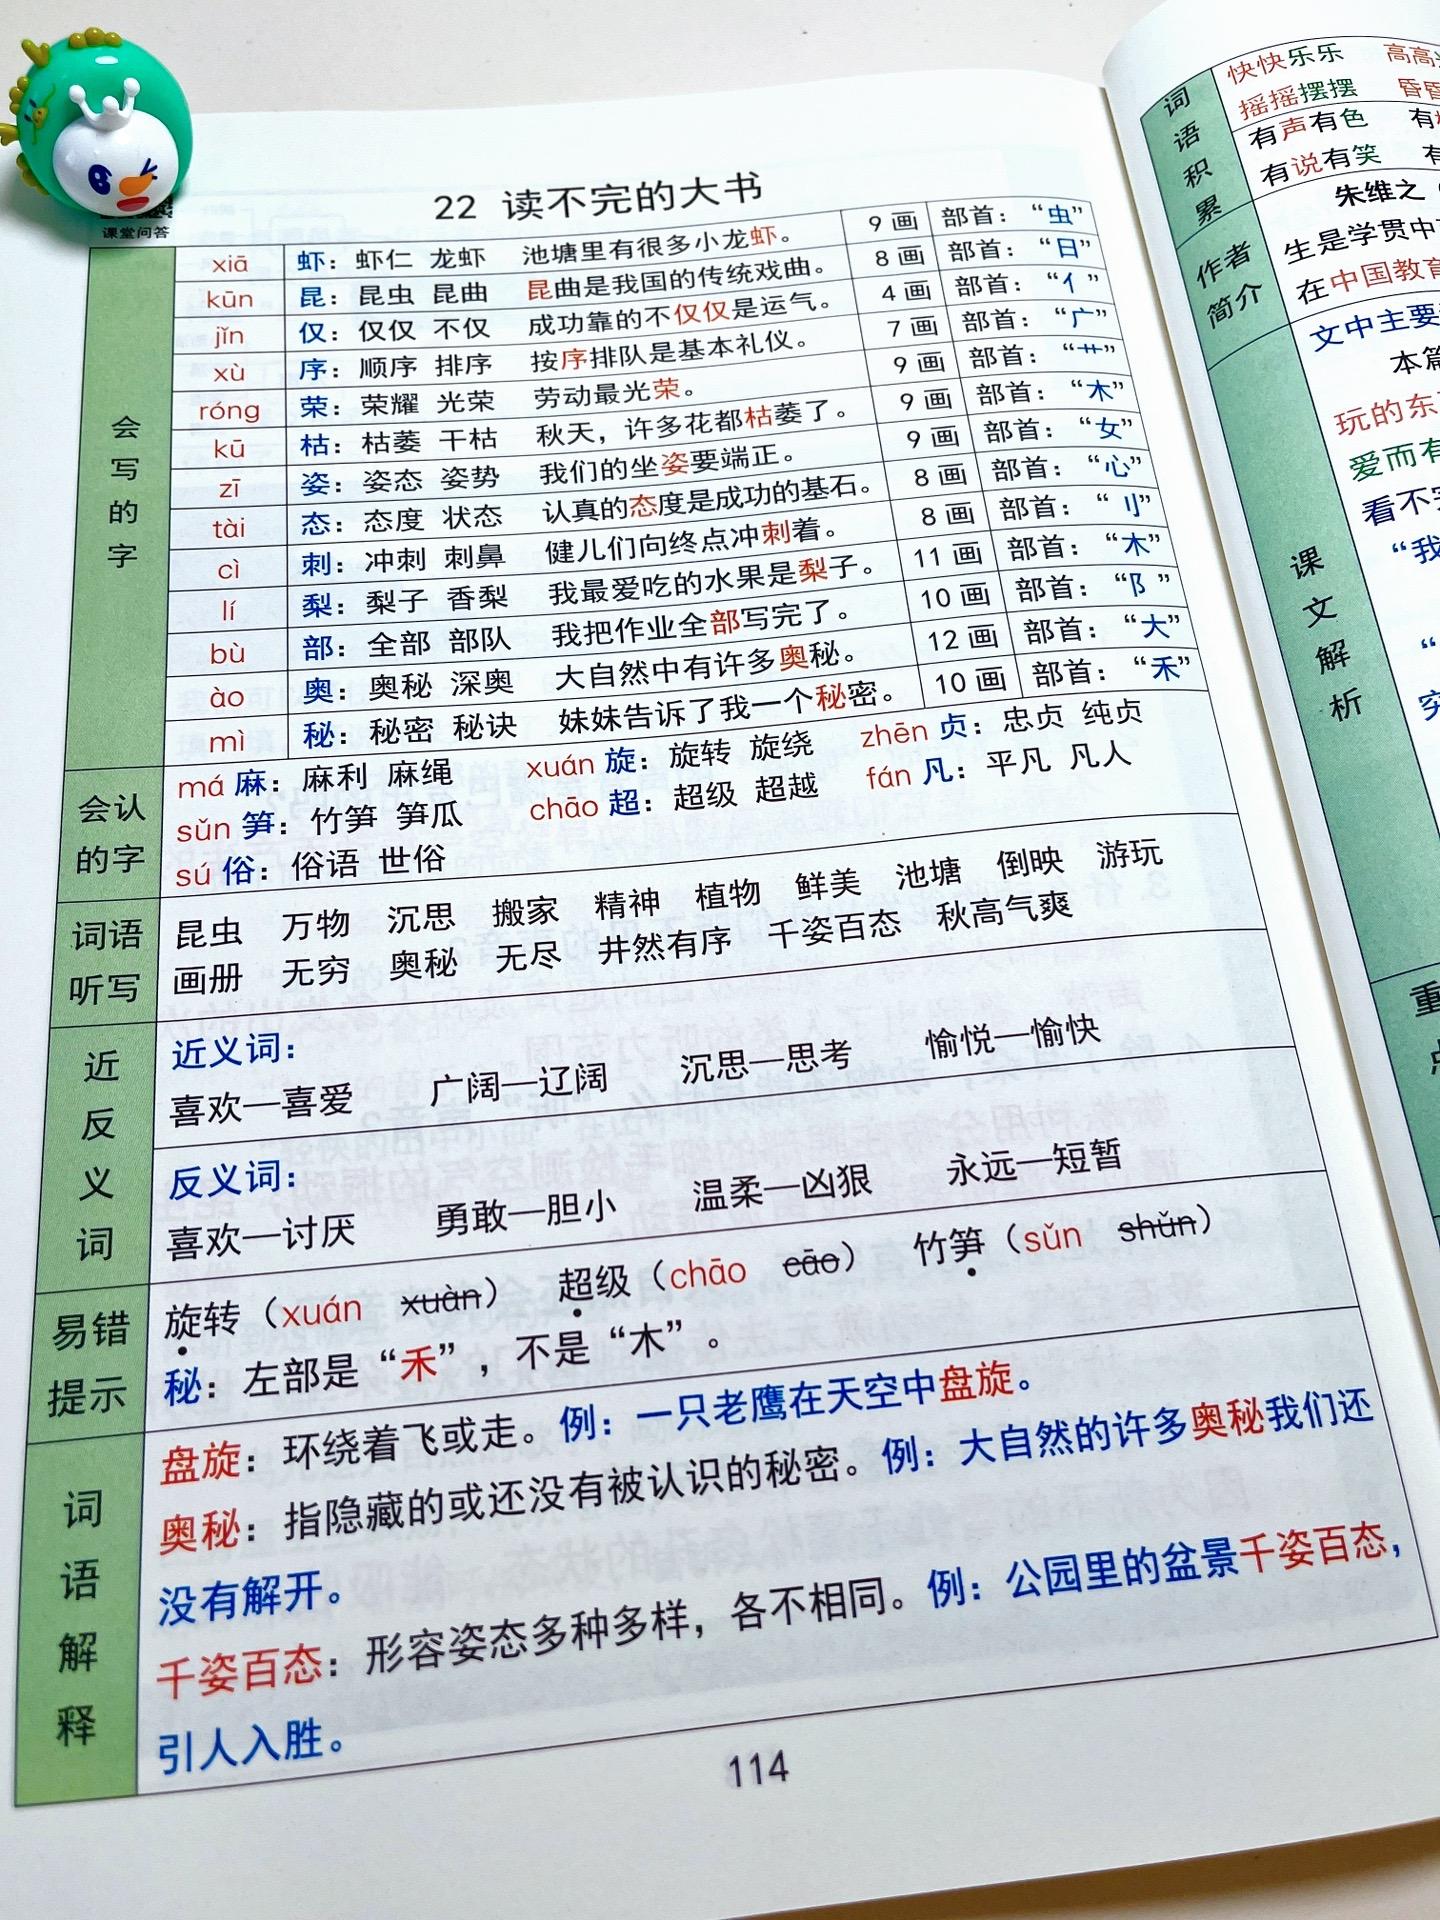 课堂问答
22 读不完的大书
会写的字
xiā 虾：虾仁 龙虾 池塘里有很多小龙虾。 9 画 部首：“虫”
kūn 昆：昆虫 昆曲 昆曲是我国的传统戏曲。 8 画 部首：“日”
jǐn 仅：仅仅 不仅 成功靠的不仅仅是运气。 4 画 部首：“亻”
xù 序：顺序 排序 按序排队是基本礼仪。 7 画 部首：“广”
róng 荣：荣耀 光荣 劳动最光荣。 9 画 部首：“艹”
kū 枯：枯萎 干枯 秋天，许多花都枯萎了。 9 画 部首：“木”
zī 姿：姿态 姿势 我们的坐姿要端正。 9 画 部首：“女”
tài 态：态度 状态 认真的态度是成功的基石。 8 画 部首：“心”
cì 刺：冲刺 刺鼻 健儿们向终点冲刺着。 8 画 部首：“刂”
lí 梨：梨子 香梨 我最爱吃的水果是梨子。 11 画 部首：“木”
bù 部：全部 部队 我把作业全部写完了。 10 画 部首：“阝”
ào 奥：奥秘 深奥 大自然中有许多奥秘。 12 画 部首：“大”
mì 秘：秘密 秘诀 妹妹告诉了我一个秘密。 10 画 部首：“禾”
会认的字
má 麻：麻利 麻绳 xuán 旋：旋转 旋绕 zhēn 贞：忠贞 纯贞
sǔn 笋：竹笋 笋瓜 chāo 超：超级 超越 fán 凡：平凡 凡人
sú 俗：俗语 世俗
词语听写
昆虫 万物 沉思 搬家 精神 植物 鲜美 池塘 倒映 游玩
画册 无穷 奥秘 无尽 井然有序 千姿百态 秋高气爽
近反义词
近义词：
喜欢—喜爱 广阔—辽阔 沉思—思考 愉悦—愉快
反义词：
喜欢—讨厌 勇敢—胆小 温柔—凶狠 永远—短暂
易错提示
旋转（xuán xuàn） 超级（chāo cāo） 竹笋（sǔn shǔn）
秘：左部是“禾”，不是“木”。
词语解释
盘旋：环绕着飞或走。例：一只老鹰在天空中盘旋。
奥秘：指隐藏的或还没有被认识的秘密。例：大自然的许多奥秘我们还
没有解开。
千姿百态：形容姿态多种多样，各不相同。例：公园里的盆景千姿百态，
引人入胜。
114
词语积累
快快乐乐 高高
摇摇摆摆 昏昏
有声有色 有
有说有笑 有
作者简介
朱维之（
生是学贯中
在中国教育
课文解析
文中主要
本篇
玩的东
爱而有
看不完
“我
“
穷
重
点